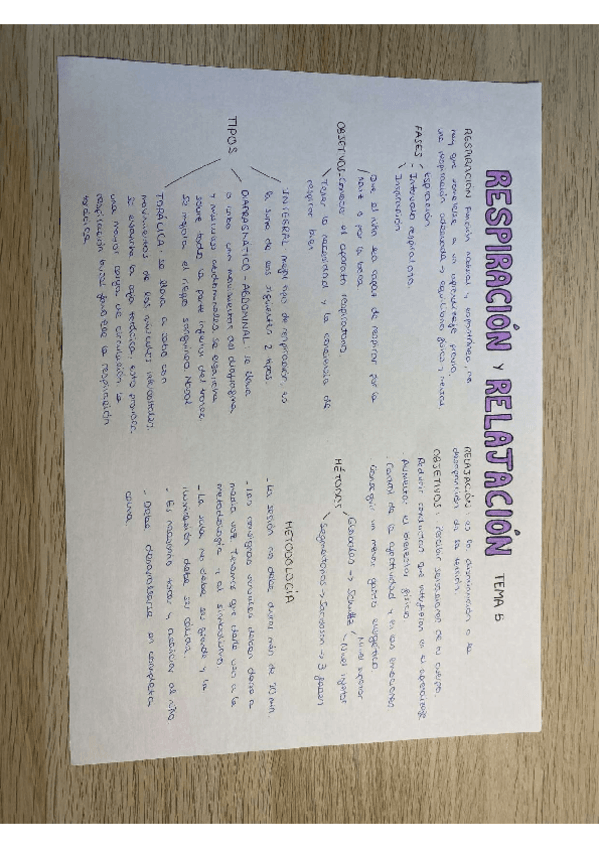 RESPIRACIÓN Y RELAJACIÓN TEMA 5
RESPIRACIÓN: Función natural y espontánea, no
hay que someterse a un aprendizaje previo.
una respiración adecuada → equilibrio físico y mental.
FASES Espiración
Intervalo respiratorio.
Inspiración
Que el niño sea capaz de respirar por la
nariz o por la boca
OBJETIVOS: Conocer el aparato respiratorio.
Tener la necesidad y la conciencia de
respirar bien
TIPOS
INTEGRAL: mejor tipo de respiración, es
la suma de los siguientes 2 tipos.
DIAFRAGMÁTICO-ABDOMINAL: se lleva
a cabo un movimiento del diafragma,
y músculos abdominales, se ensancha
sobre todo la parte inferior del tórax.
Se mejora el riego sanguíneo.
TORÁCICA: se lleva a cabo con
movimientos de los músculos intercostales.
se ensancha la caja torácica, esto provoca
una mayor carga de circulación. La
respiración bucal favorece la respiración
torácica.
RELAJACIÓN: es la disminución o la
desaparición de la tensión.
OBJETIVOS: Percibir sensaciones de su cuerpo.
Reducir conductas que interfieran en el aprendizaje
Aumentar el bienestar físico
Control de la afectividad y de las emociones
Conseguir un menor gasto energético.
MÉTODOS Globales → Schultz Nivel superior
Nivel inferior
Segmentarios → Jacobson → 3 fases
METODOLOGÍA
- La sesión no debe durar más de 20 min
- Las consignas verbales deben darse a
media voz. Timbre que varíe uso a la
metodología y al simbolismo
- La sala no debe ser grande y la
iluminación debe ser difusa.
- Es necesario tocar y acariciar al niño
- Debe desarrollarse en completa
calma.